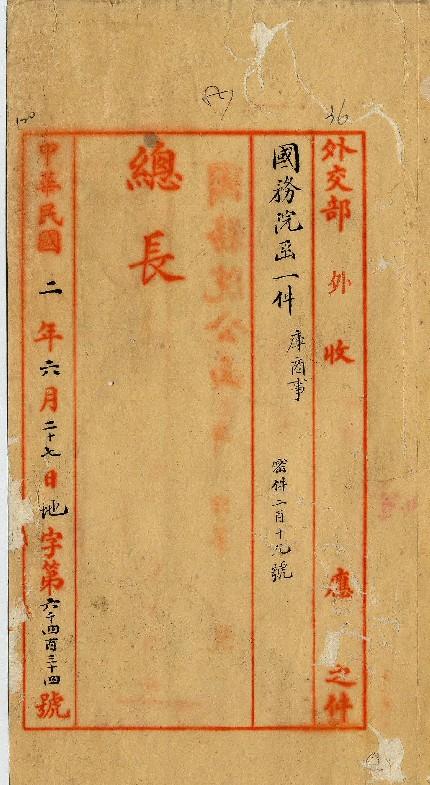 36
外交部 外 收 應 之件
國務院函一件 庫商事 密件二百十九號
總長
中華民國二年六月二十七日地字第六千四百三十四號